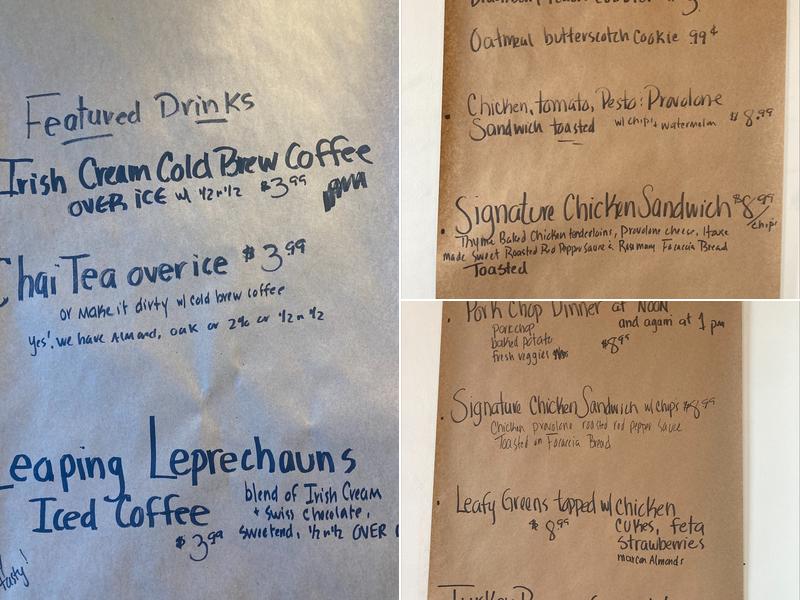 Featured Drinks
Irish Cream Cold Brew Coffee
OVER ICE w/ 1/2 n 1/2 $3.99
Chai Tea over ice $3.99
or make it dirty w/ cold brew coffee
Yes! we have Almond, oak or 2% or 1/2 n 1/2
Leaping Leprechauns
Iced Coffee
$3.99
blend of Irish Cream
+ swiss chocolate,
sweetend, 1/2 n 1/2 OVER
tasty!
Oatmeal butterscotch cookie 99¢
Chicken, tomato, Pesto & Provolone
Sandwich toasted w/ chips & watermelon $8.99
Signature Chicken Sandwich $8.99
/chips
Thyme Baked Chicken tenderloins, Provolone cheese, House
made Sweet Roasted Red Pepper sauce & Rosemary Focaccia Bread
Toasted
Pork Chop Dinner at NOON
and again at 1 pm
pork chop
baked potato
fresh veggies
$8.99
Signature Chicken Sandwich w/ chips $8.99
Chicken provolone roasted red pepper sauce
Toasted on Focaccia Bread
Leafy Greens topped w/ chicken
$8.99
cukes, feta
strawberries
marcon Almonds